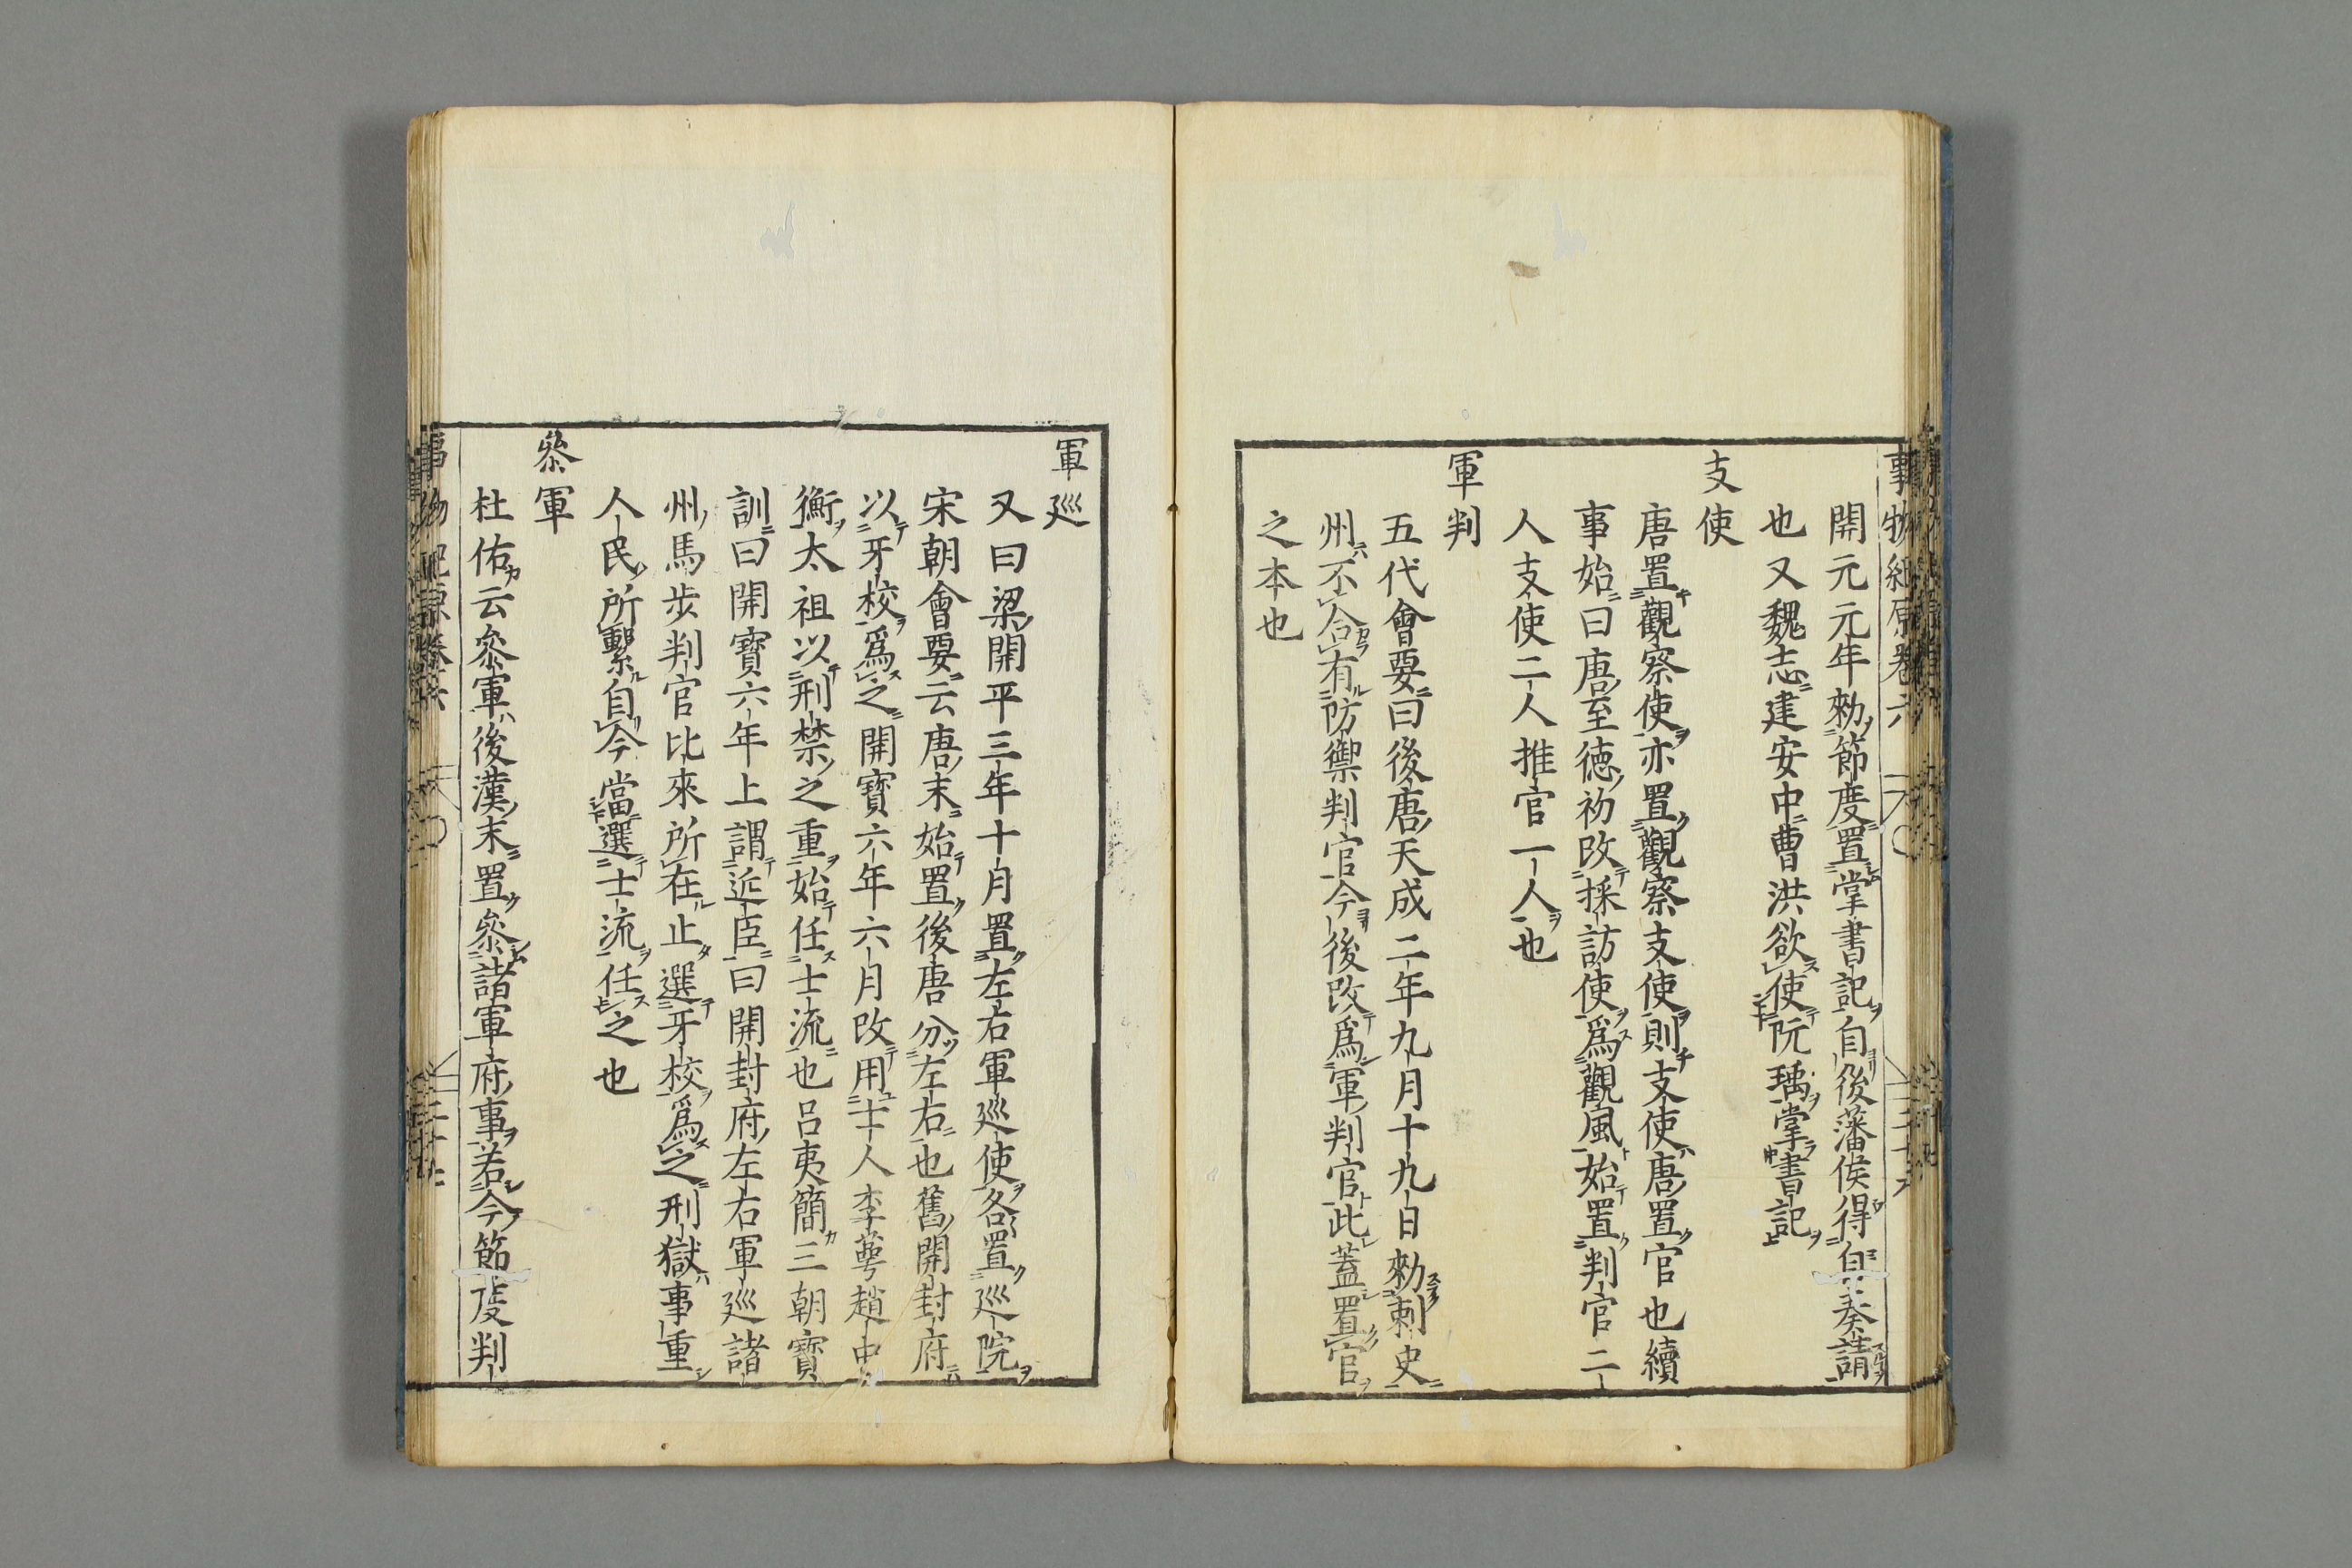 事物紀原卷六
開元元年勑節度置掌書記自後藩侯得自奏請
也又魏志建安中曹洪欲使阮瑀掌書記
支使
唐置觀察使亦置觀察支使則支使唐置官也續
事始曰唐至德初改採訪使爲觀風始置判官二
人支使二人推官一人也
軍判
五代會要曰後唐天成二年九月十九日勑刺史
州不合有防禦判官今後改爲軍判官此蓋置官
之本也
軍巡
又曰梁開平三年十月置左右軍巡使各置巡院
宋朝會要云唐末始置後唐分左右也舊開封府
以牙校爲之開寶六年六月改用士人李蕚趙中
衡太祖以刑禁之重始任士流也呂夷簡三朝寶
訓曰開寶六年上謂近臣曰開封府左右軍巡諸
州馬步判官比來所在止選牙校爲之刑獄事重
人民所繫自今當選士流任之也
叅軍
杜佑云叅軍後漢末置叅諸軍府事若今節度判
事物紀原卷六